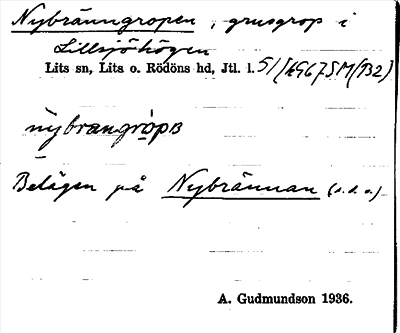 Nybränngropen, grusgrop i
Lillsjöhögen
Lits sn, Lits o. Rödöns hd, Jtl. l.
nybrangropɐ
Belägen på Nybrännan (s.d.o.)
A. Gudmundson 1936.